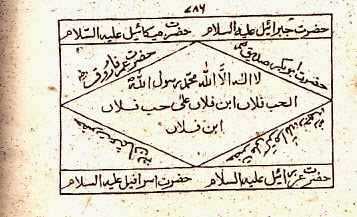 ۷۸۶
حضرت جبرائیل علیہ السلام حضرت میکائیل علیہ السلام
حضرت ابوبکر صدیق حضرت عمر فاروق
لا الہ الا اللہ محمد رسول اللہ
الحب فلاں ابن فلاں علی حب فلاں
ابن فلاں
حضرت عثمان حضرت علی
حضرت عزرائیل علیہ السلام حضرت اسرافیل علیہ السلام